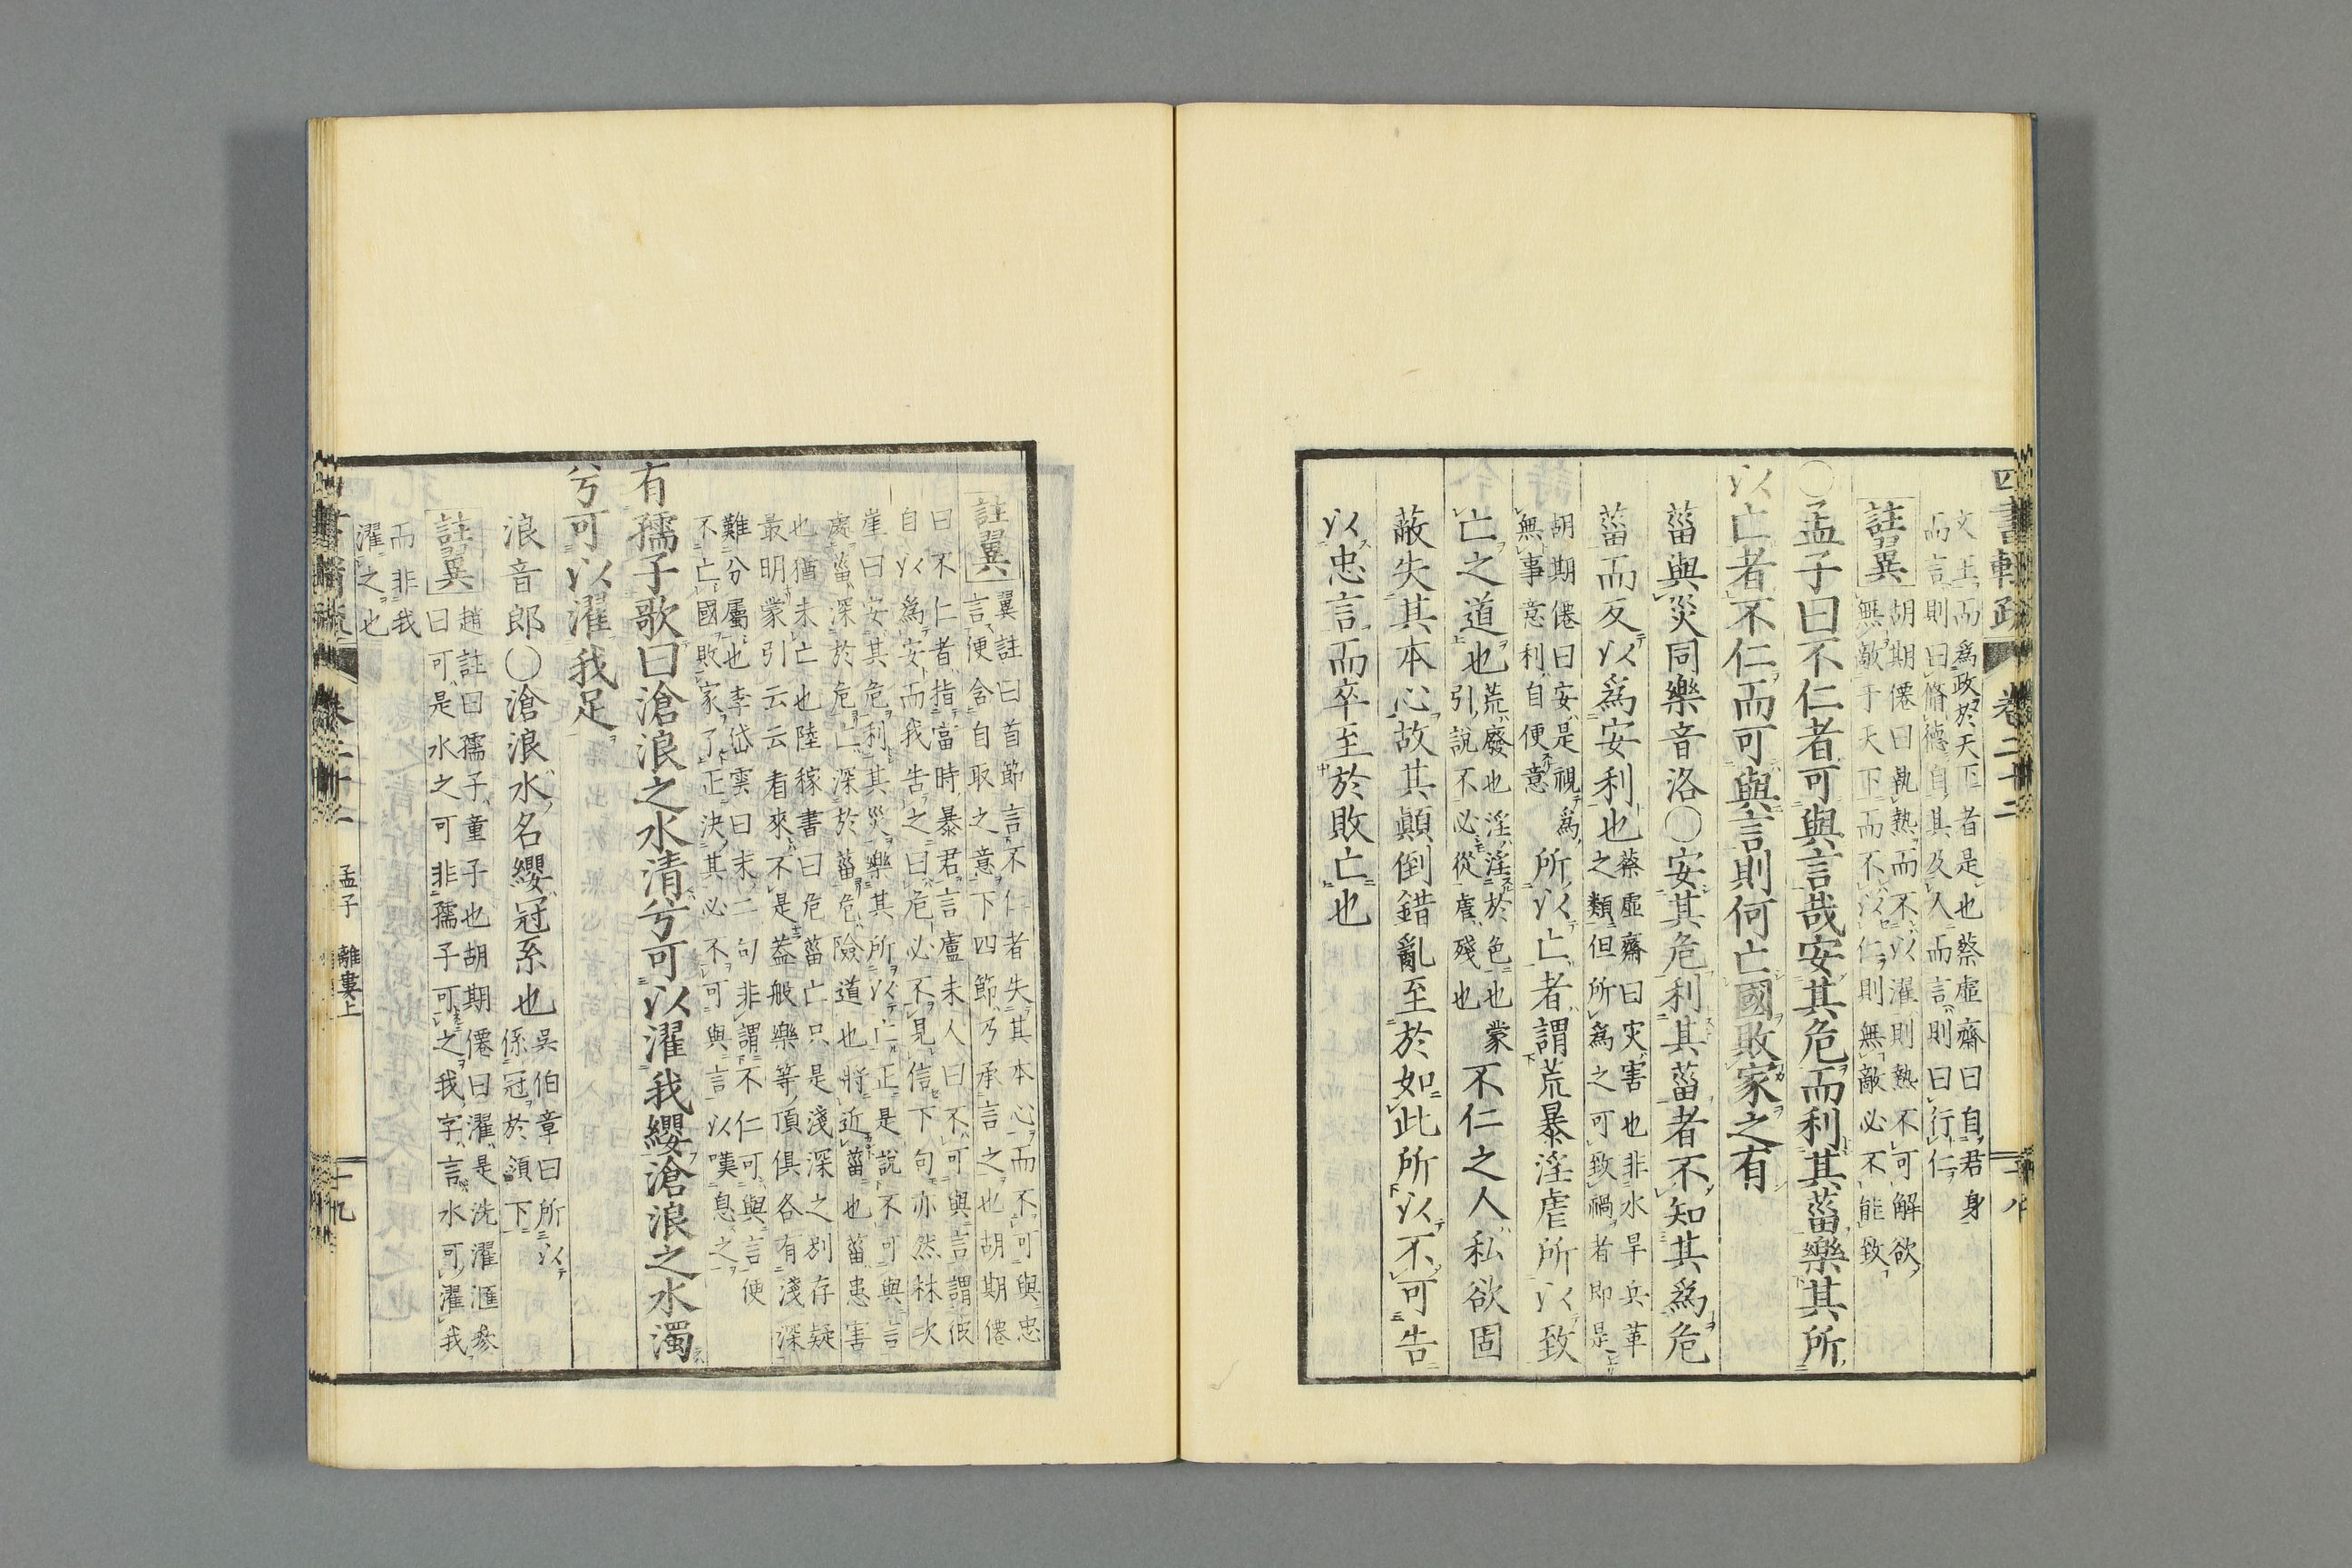 四書輯疏 卷二十二 十八
文王而爲政於天下者是也蔡虛齋曰自君身
而言則曰脩德自其及人而言則曰行仁
註翼 胡期僊曰執熱而不以濯則熱不可解欲
無敵于天下而不以仁則無敵必不能致
○孟子曰不仁者可與言哉安其危而利其菑樂其所
以亡者不仁而可與言則何亡國敗家之有
菑與災同樂音洛○安其危利其菑者不知其爲危
菑而反以爲安利也蔡虛齋曰灾害也非水旱兵革
之類但所爲之可致禍者即是
胡期僊曰安是視爲
無事意利自便意
所以亡者謂荒暴淫虐所以致
亡之道也荒廢也淫淫於色也蒙
引說不必從虐殘也
不仁之人私欲固
蔽失其本心故其顛倒錯亂至於如此所以不可告
以忠言而卒至於敗亡也
註翼 翼註曰首節言不仁者失其本心而不可與忠
言便含自取之意下四節乃承言之也胡期僊
曰不仁者指富時暴君言盧未人曰不可與言謂彼
自以爲安而我告之曰危必不見信下句亦然林次
崖曰安其危利其災樂其所以亡正是說不可與言
處菑深於危亡深於菑危險道也將近菑也菑患害
也猶未亡也陸稼書曰危菑亡只是淺深之別存疑
最明蒙引云云看來不是蓋般樂等項俱各有淺深
難分屬也李岱雲曰末二句非謂不仁可與言便
不亡國敗家了正決其必不可與言以嘆息之
有孺子歌曰滄浪之水清兮可以濯我纓滄浪之水濁
兮可以濯我足
浪音郎○滄浪水名纓冠系也吳伯章曰所以
係冠於頷下
註翼 趙註曰孺子童子也胡期僊曰濯是洗濯滙參
曰可是水之可非孺子可之我字言水可濯我
而非我
濯之也
孟子 離婁上 十九